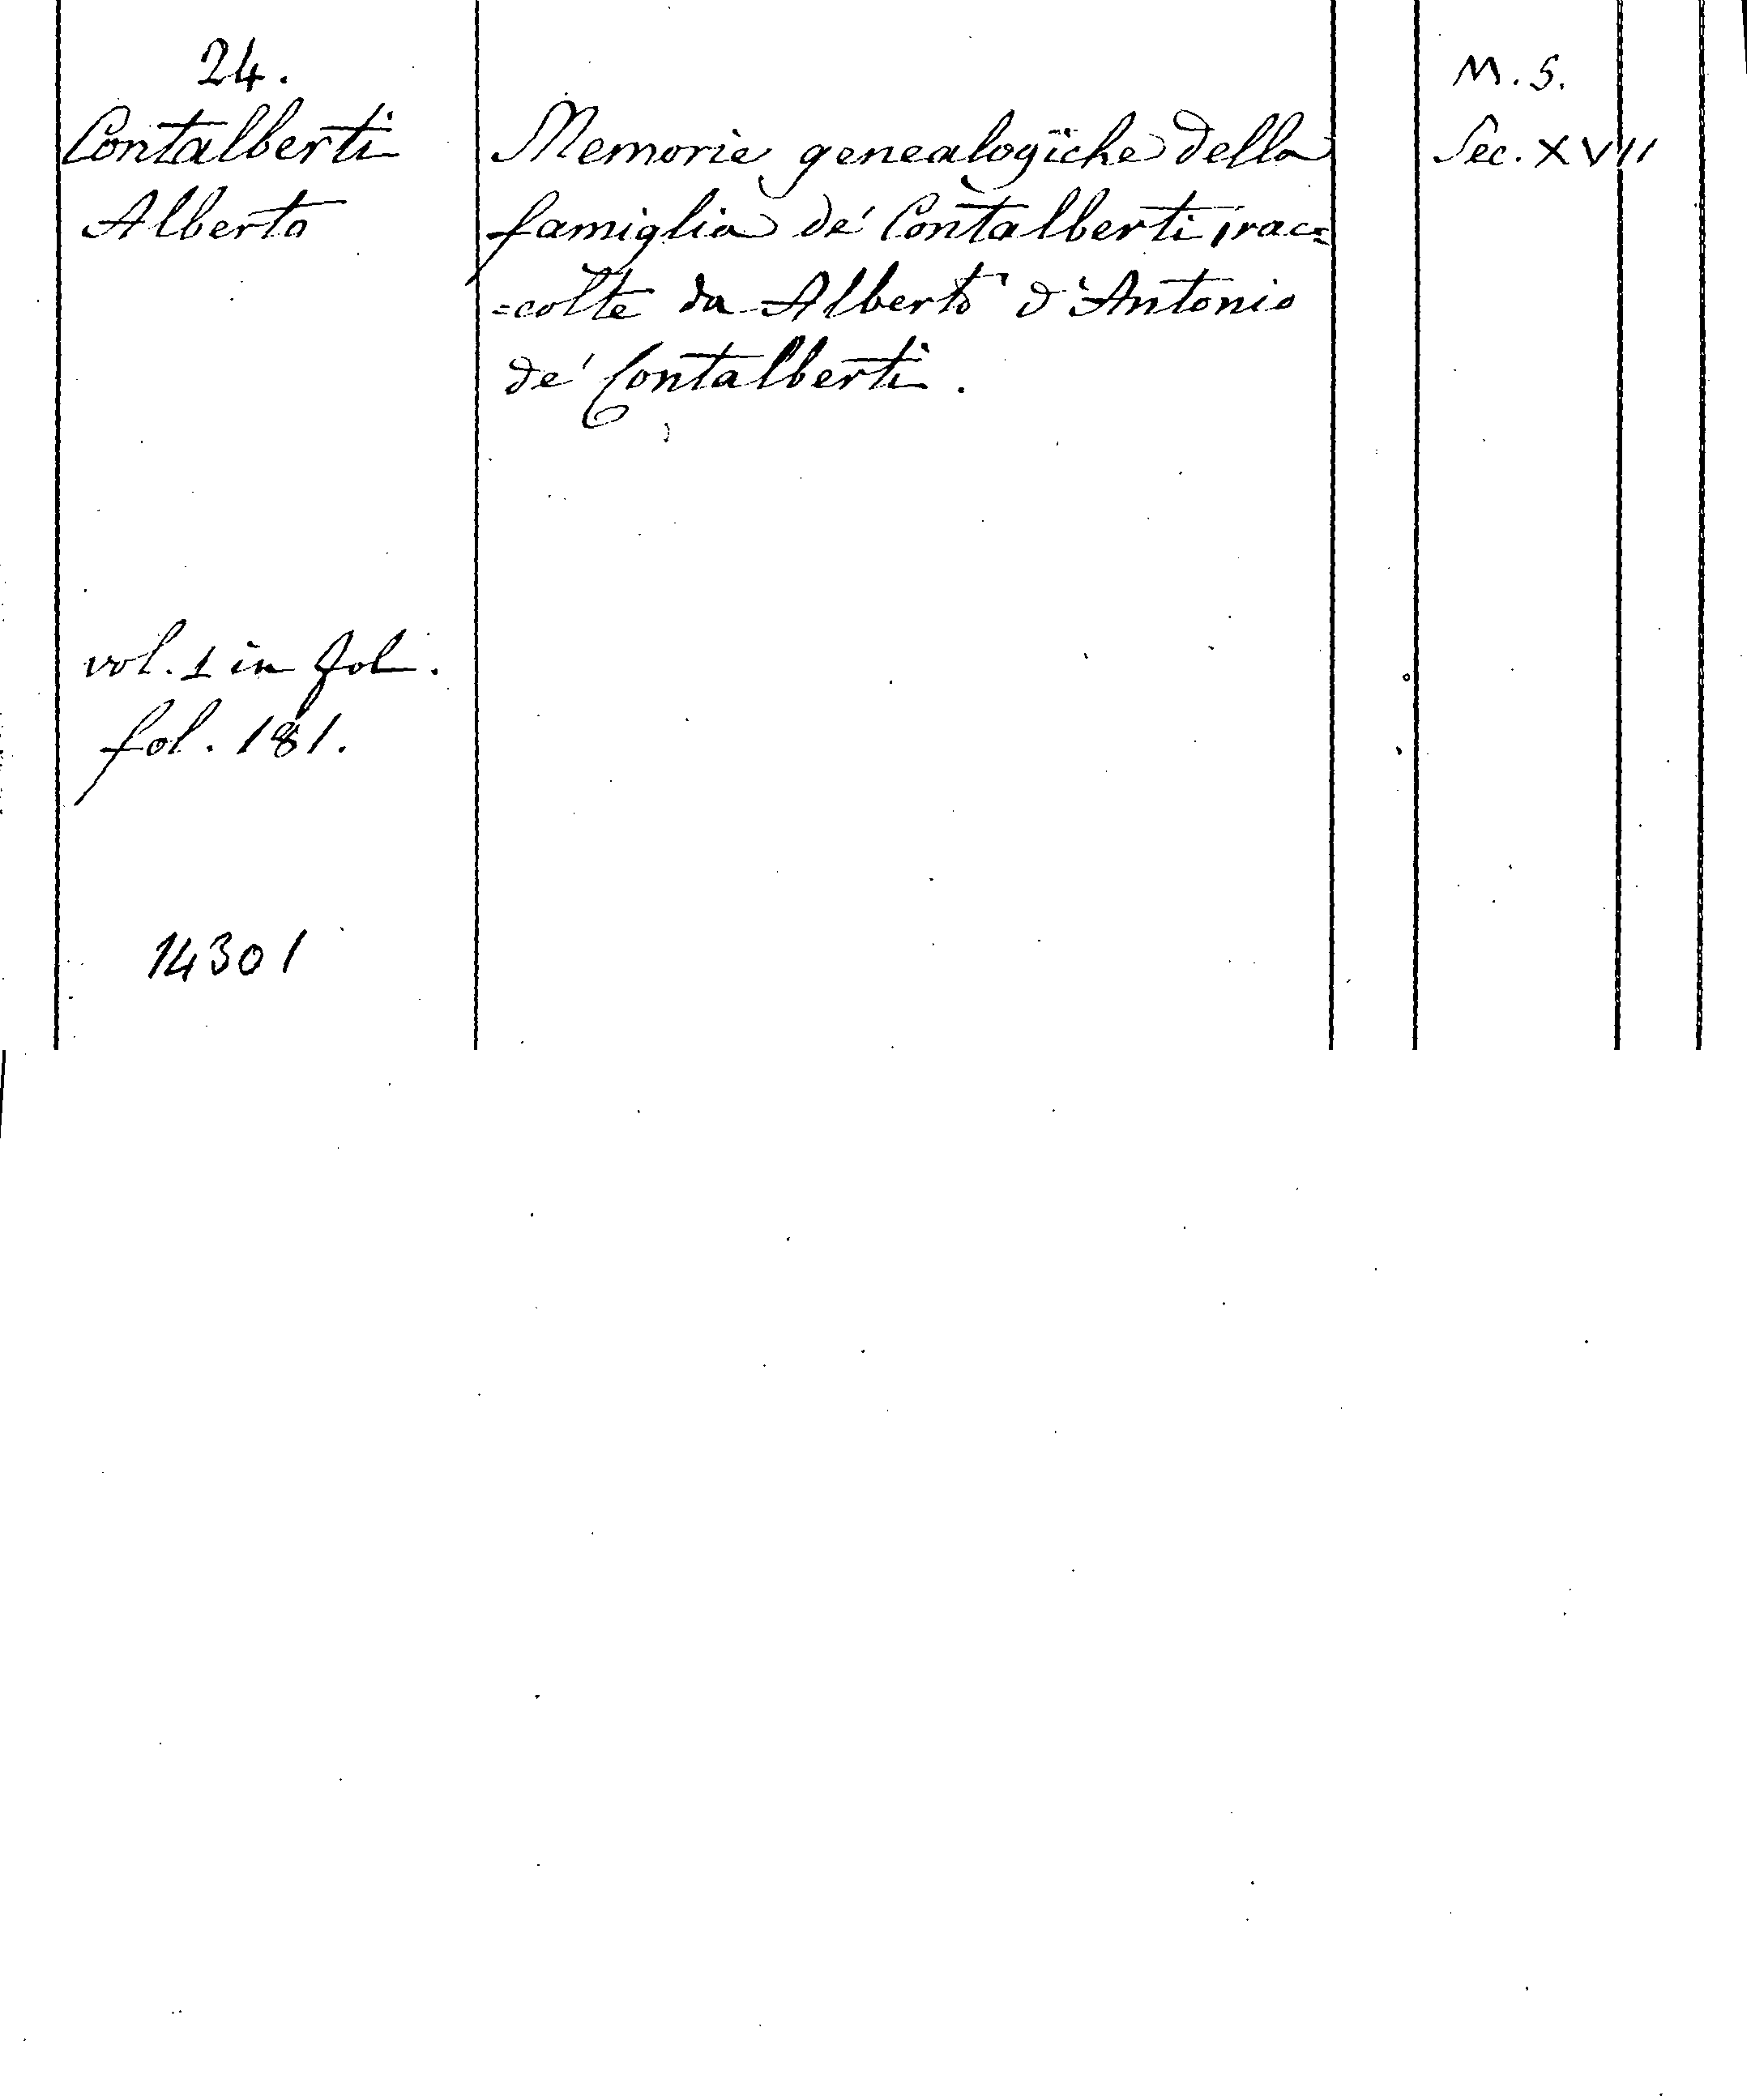 24.
Contalberti
Alberto
vol. 1 in fol.
fol. 181.
14301
Memorie genealogiche della
famiglia de' Contalberti, rac=
=colte da Alberto d'Antonio
de' Contalberti.
M. S.
Sec. XVII